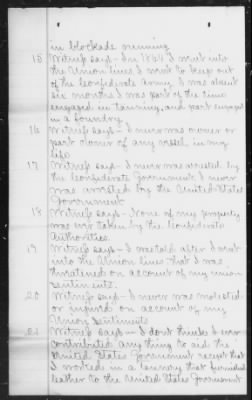 in blockade running
15 Witness says - In 1864 I went into
the Union lines I went to keep out
of the Confederate Army I was about
six months I was part of the time
engaged in tanning, and part engaged
in a foundry
16 Witness says - I never was owner or
part owner of any vessel in my
life
17 Witness says - I never was arrested by
the Confederate Government I never
was arrested by the United States
Government
18 Witness says - None of my property
was ever taken by the Confederate
Authorities.
19 Witness says - I was told after I went
into the Union lines that I was
threatened on account of my union
sentiments.
20 Witness says - I never was molested
or injured on account of my
Union sentiments
21 Witness says - I dont think I ever
contributed any thing to aid the
United States Government except that
I worked in a tannery that furnished
leather to the United States Government